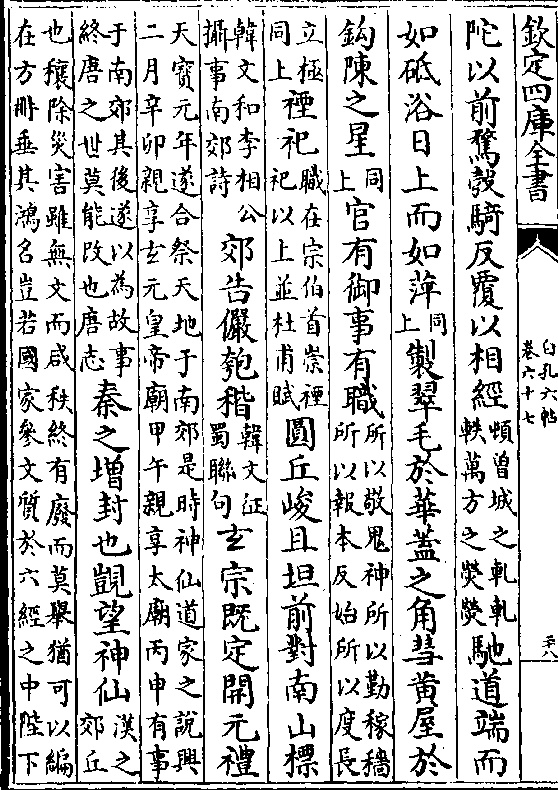 欽定四庫全書
白孔六帖
卷六十七
三八
陀以前驚彀騎反覆以相經頓曽城之軋軋
軼萬方之熒熒馳道端而
如砥浴日上而如萍同
上製翠毛於華蓋之角彗黃屋於
鈎陳之星同
上官有御事有職所以敬鬼神所以勤稼穡
所以報本反始所以度長
立極
同上禋祀職在宗伯首崇禋
祀以上並杜甫賦圓丘峻且坦前對南山標
韓文和李相公
攝事南郊詩郊告儼匏稭韓文征
蜀聯句玄宗既定開元禮
天寶元年遂合祭天地于南郊是時神仙道家之說興
二月辛卯親享玄元皇帝廟甲午親享太廟丙申有事
于南郊其後遂以為故事
終唐之世莫能改也唐志秦之增封也覬望神仙漢之
郊丘
也穰除災害雖無文而咸秩終有廢而莫舉猶可以編
在方冊垂其鴻名豈若國家參文質於六經之中陛下